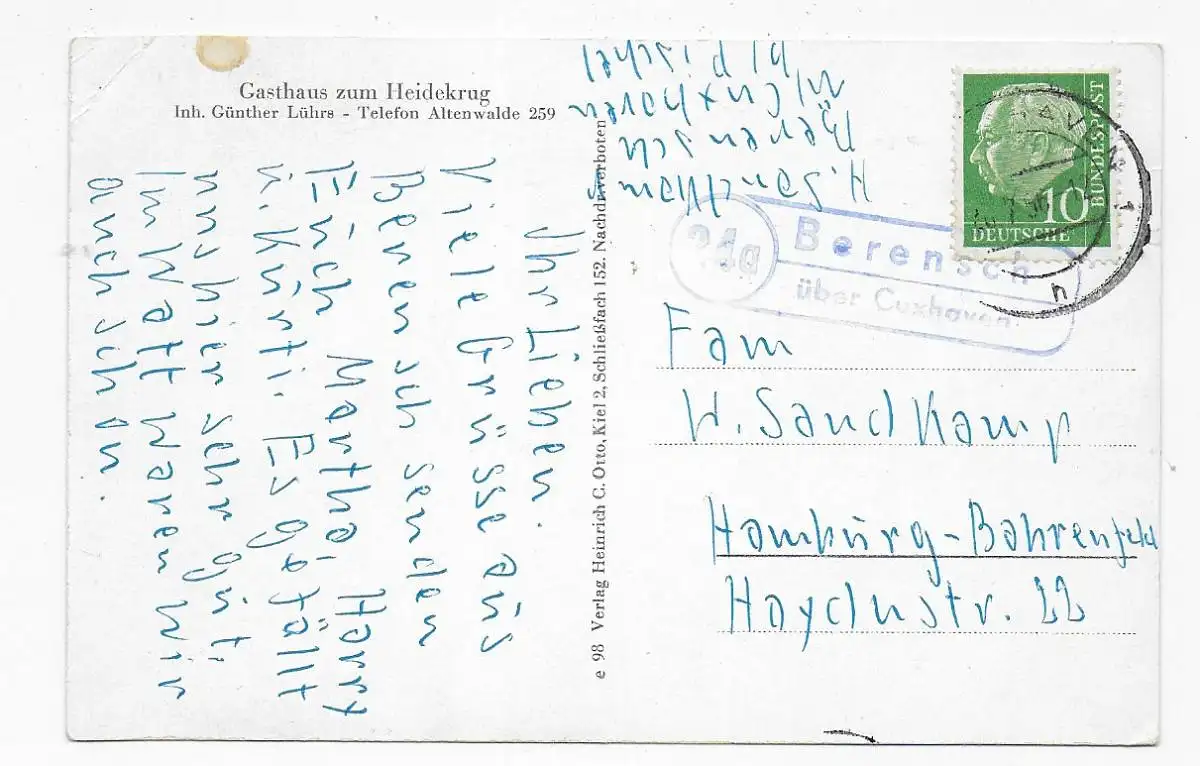 Gasthaus zum Heidekrug
Inh. Günther Lührs - Telefon Altenwalde 259
Ihr Lieben.
Viele Grüsse aus
Berensch senden
Euch Martha, Harry
u. Kürti. Es gefällt
uns hier sehr gut.
Im Watt waren wir
auch schon.
e 98 Verlag Heinrich C. Otto, Kiel 2, Schließfach 152. Nachdruck verboten
H. Sandkamp
Berensch
Cuxhaven
10
DEUTSCHE
BUNDESPOST
24a
Berensch
über Cuxhaven
n
Fam
W. Sandkamp
Hamburg-Bahrenfeld
Haydnstr. 22